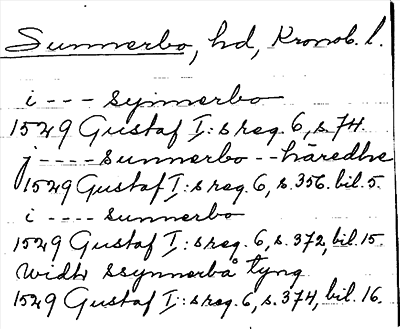 Sunnerbo, hd, Kronob. l.
i - - - Synnerbo
1529 Gustaf I:s reg. 6, s. 74.
j - - - - Sunnerbo - - häredhe
1529 Gustaf I:s reg. 6, s. 356. bil. 5.
i - - - - Sunnerbo
1529 Gustaf I:s reg. 6, s. 372, bil. 15.
widh Ssynnerbå tyng
1529 Gustaf I:s reg. 6, s. 374, bil. 16.